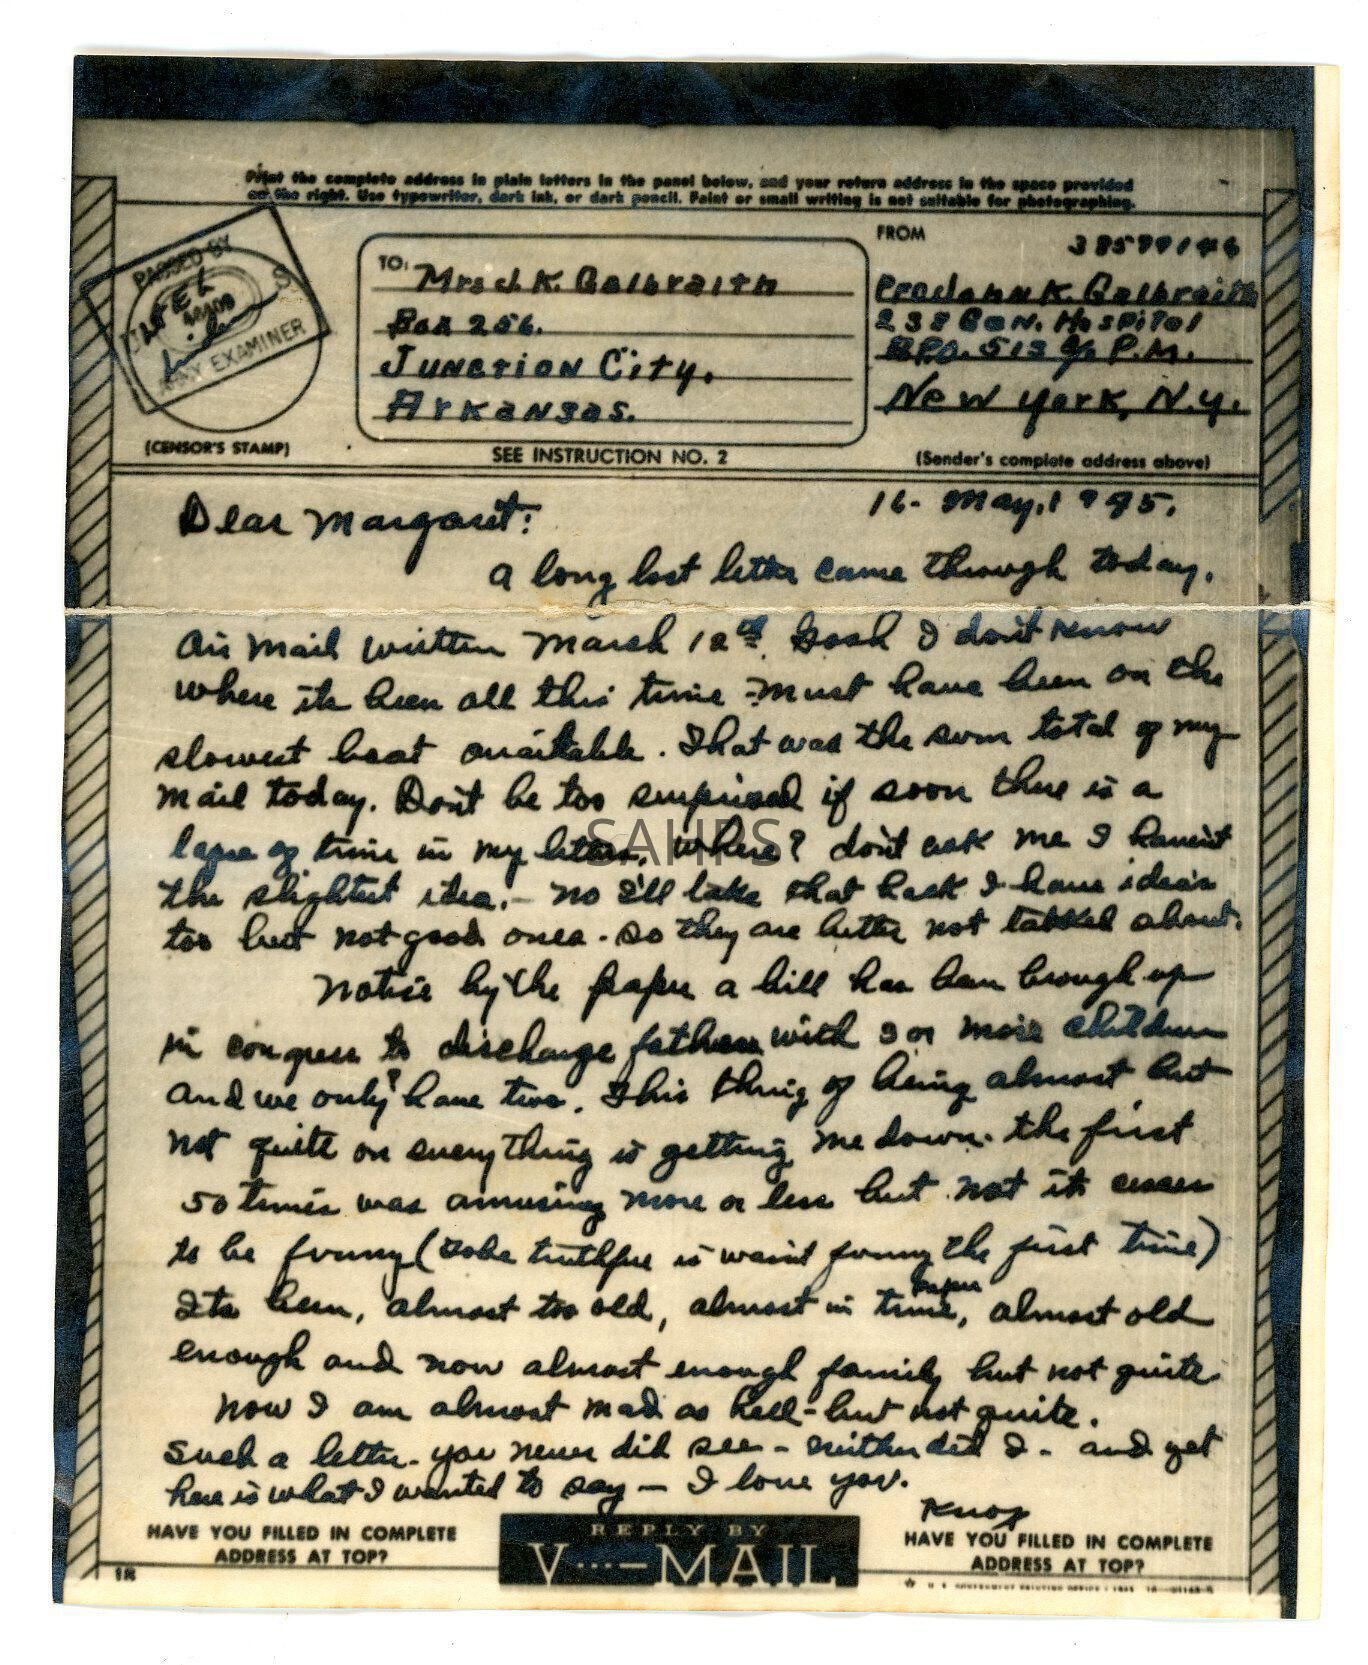 Print the complete address in plain letters in the panel below, and your return address in the space provided
on the right. Use typewriter, dark ink, or dark pencil. Faint or small writing is not suitable for photographing.
PASSED BY
ARMY EXAMINER
(CENSOR'S STAMP)
TO:
Mrs J. K. Galbraith
Box 256.
Junction City,
Arkansas.
SEE INSTRUCTION NO. 2
FROM
K. Galbraith
238 Gen. Hospital
A.P.O. 513 c/o P.M.
New York, N.Y.
(Sender's complete address above)
16- May, 1945.
Dear Margaret:
a long lost letter came through today.
Air mail written March 12th. Gosh I don't know
where its been all this time - Must have been on the
slowest boat available. That was the sum total of my
mail today. Don't be too surprised if soon there is a
lapse of time in my letters. Where? don't ask me I haven't
the slightest idea. - no I'll take that back I have ideas
too but not good ones - so they are better not talked about.
Notice by the paper a bill has been brough up
in congress to discharge fathers with 3 or more children
and we only have two. This thing of being almost but
not quite on everything is getting me down. the first
50 times was amusing more or less but not it ceases
to be funny (to be truthful is wasn't funny the first time)
Its been, almost too old, almost in time, almost old
enough and now almost enough family but not quite.
Now I am almost mad as hell - but not quite.
Such a letter - you never did see - neither did I - and yet
here is what I wanted to say — I love you.
Knox
HAVE YOU FILLED IN COMPLETE
ADDRESS AT TOP?
REPLY BY
V···—MAIL
HAVE YOU FILLED IN COMPLETE
ADDRESS AT TOP?
SAHPS